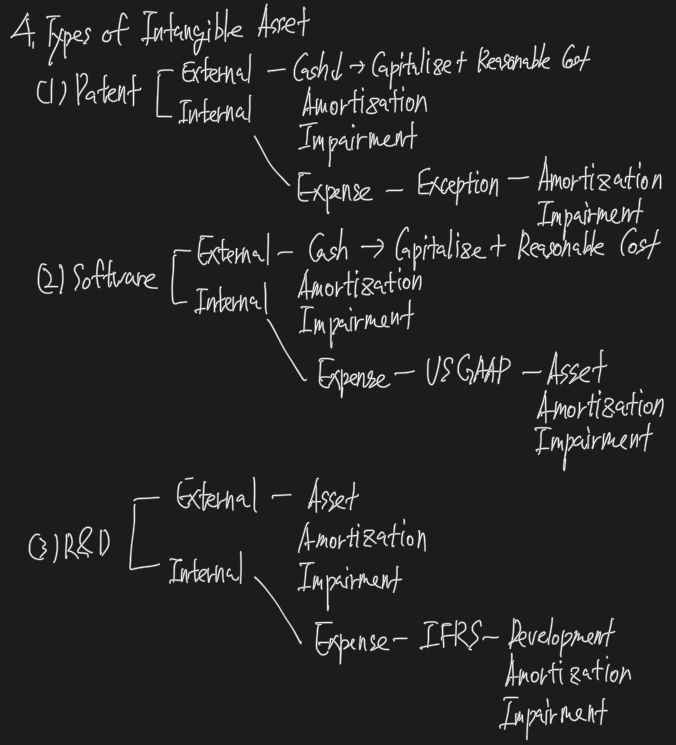 4. Types of Intangible Asset
(1) Patent External — Cash↓ → Capitalize + Reasonable Cost
Internal Amortization
Impairment
Expense — Exception — Amortization
Impairment
(2) Software External — Cash → Capitalize + Reasonable Cost
Internal Amortization
Impairment
Expense — US GAAP — Asset
Amortization
Impairment
External — Asset
(3) R&D Amortization
Internal Impairment
Expense — IFRS — Development
Amortization
Impairment